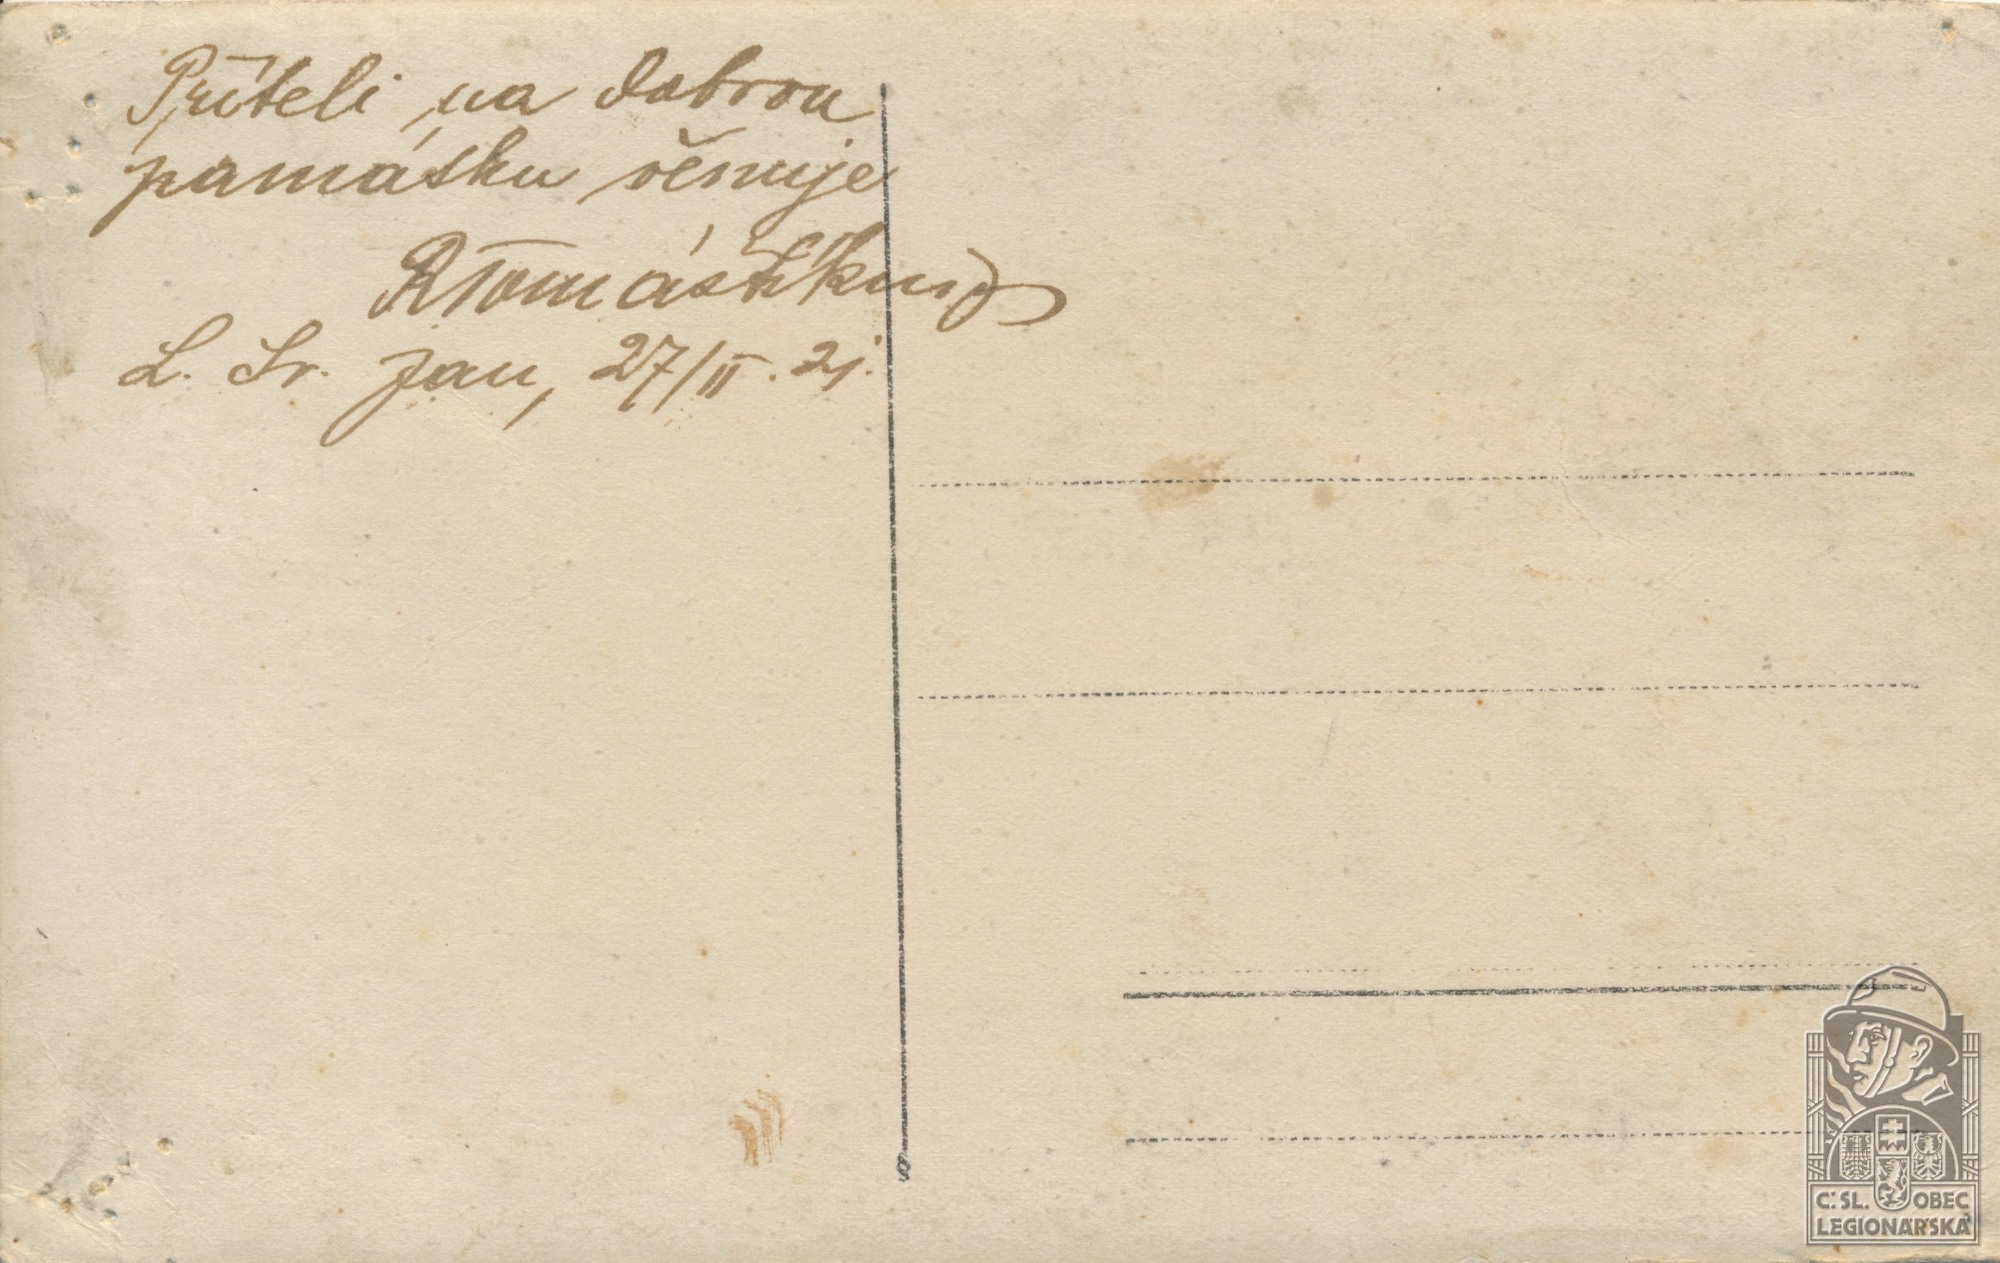 Příteli na dobrou
památku věnuje
L. Sv. Jan, 27/II. 21.
Č. SL. OBEC
LEGIONÁŘSKÁ